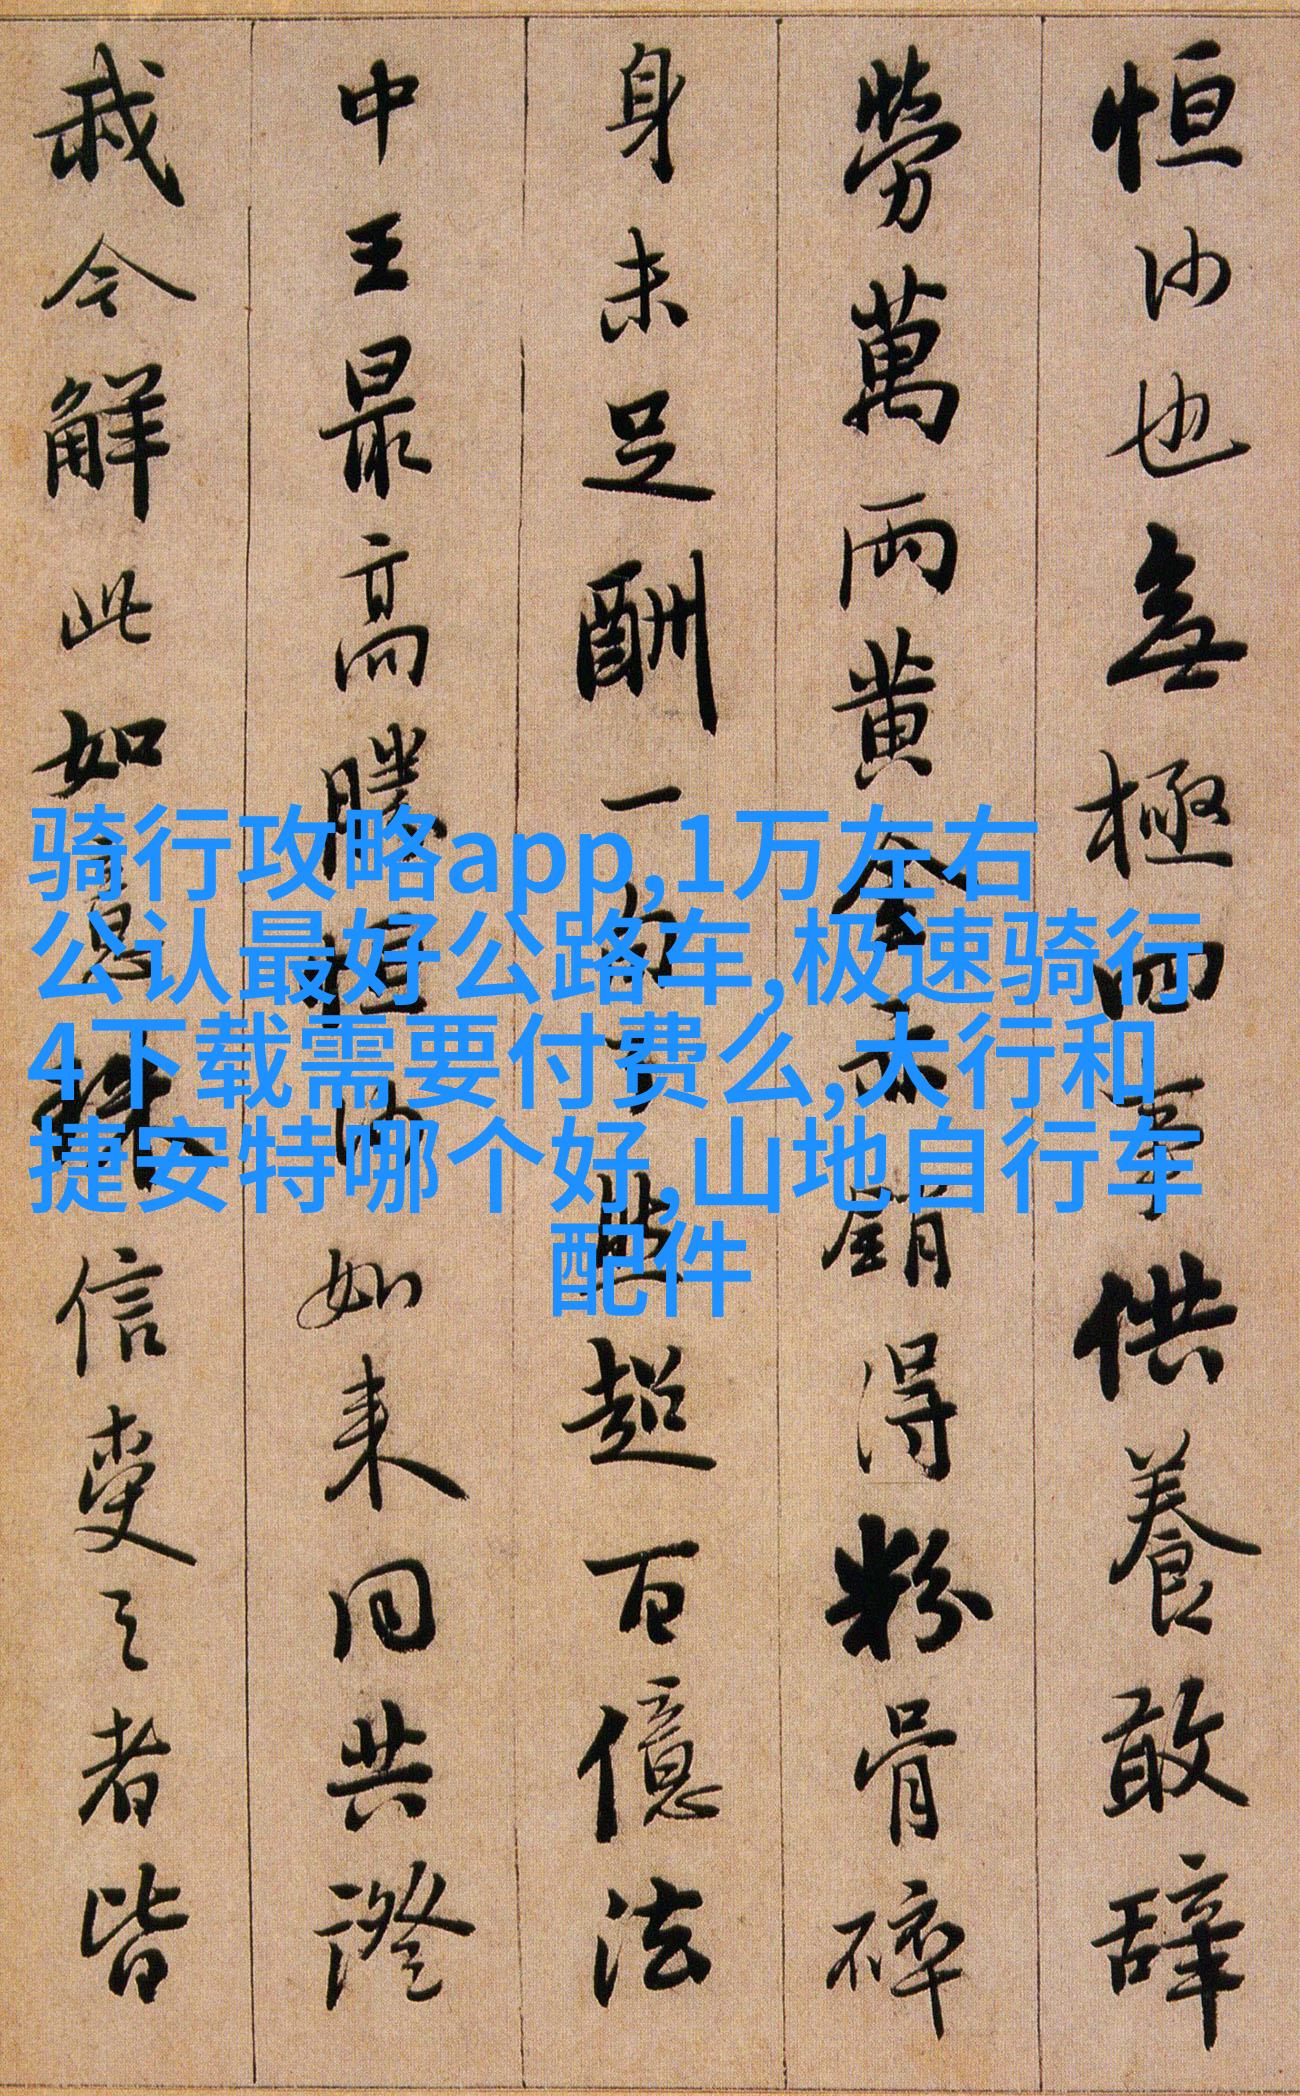 恒沙也無極四事供養敢辞
勞萬兩黄金亦銷得粉骨碎
身未足酬一句了然超百億法
中王最高勝恒沙如来同共證
我今解此如意珠信受之者皆
骑行攻略app,1万左右
公认最好公路车,极速骑行
4下载需要付费么,大行和
捷安特哪个好,山地自行车
配件